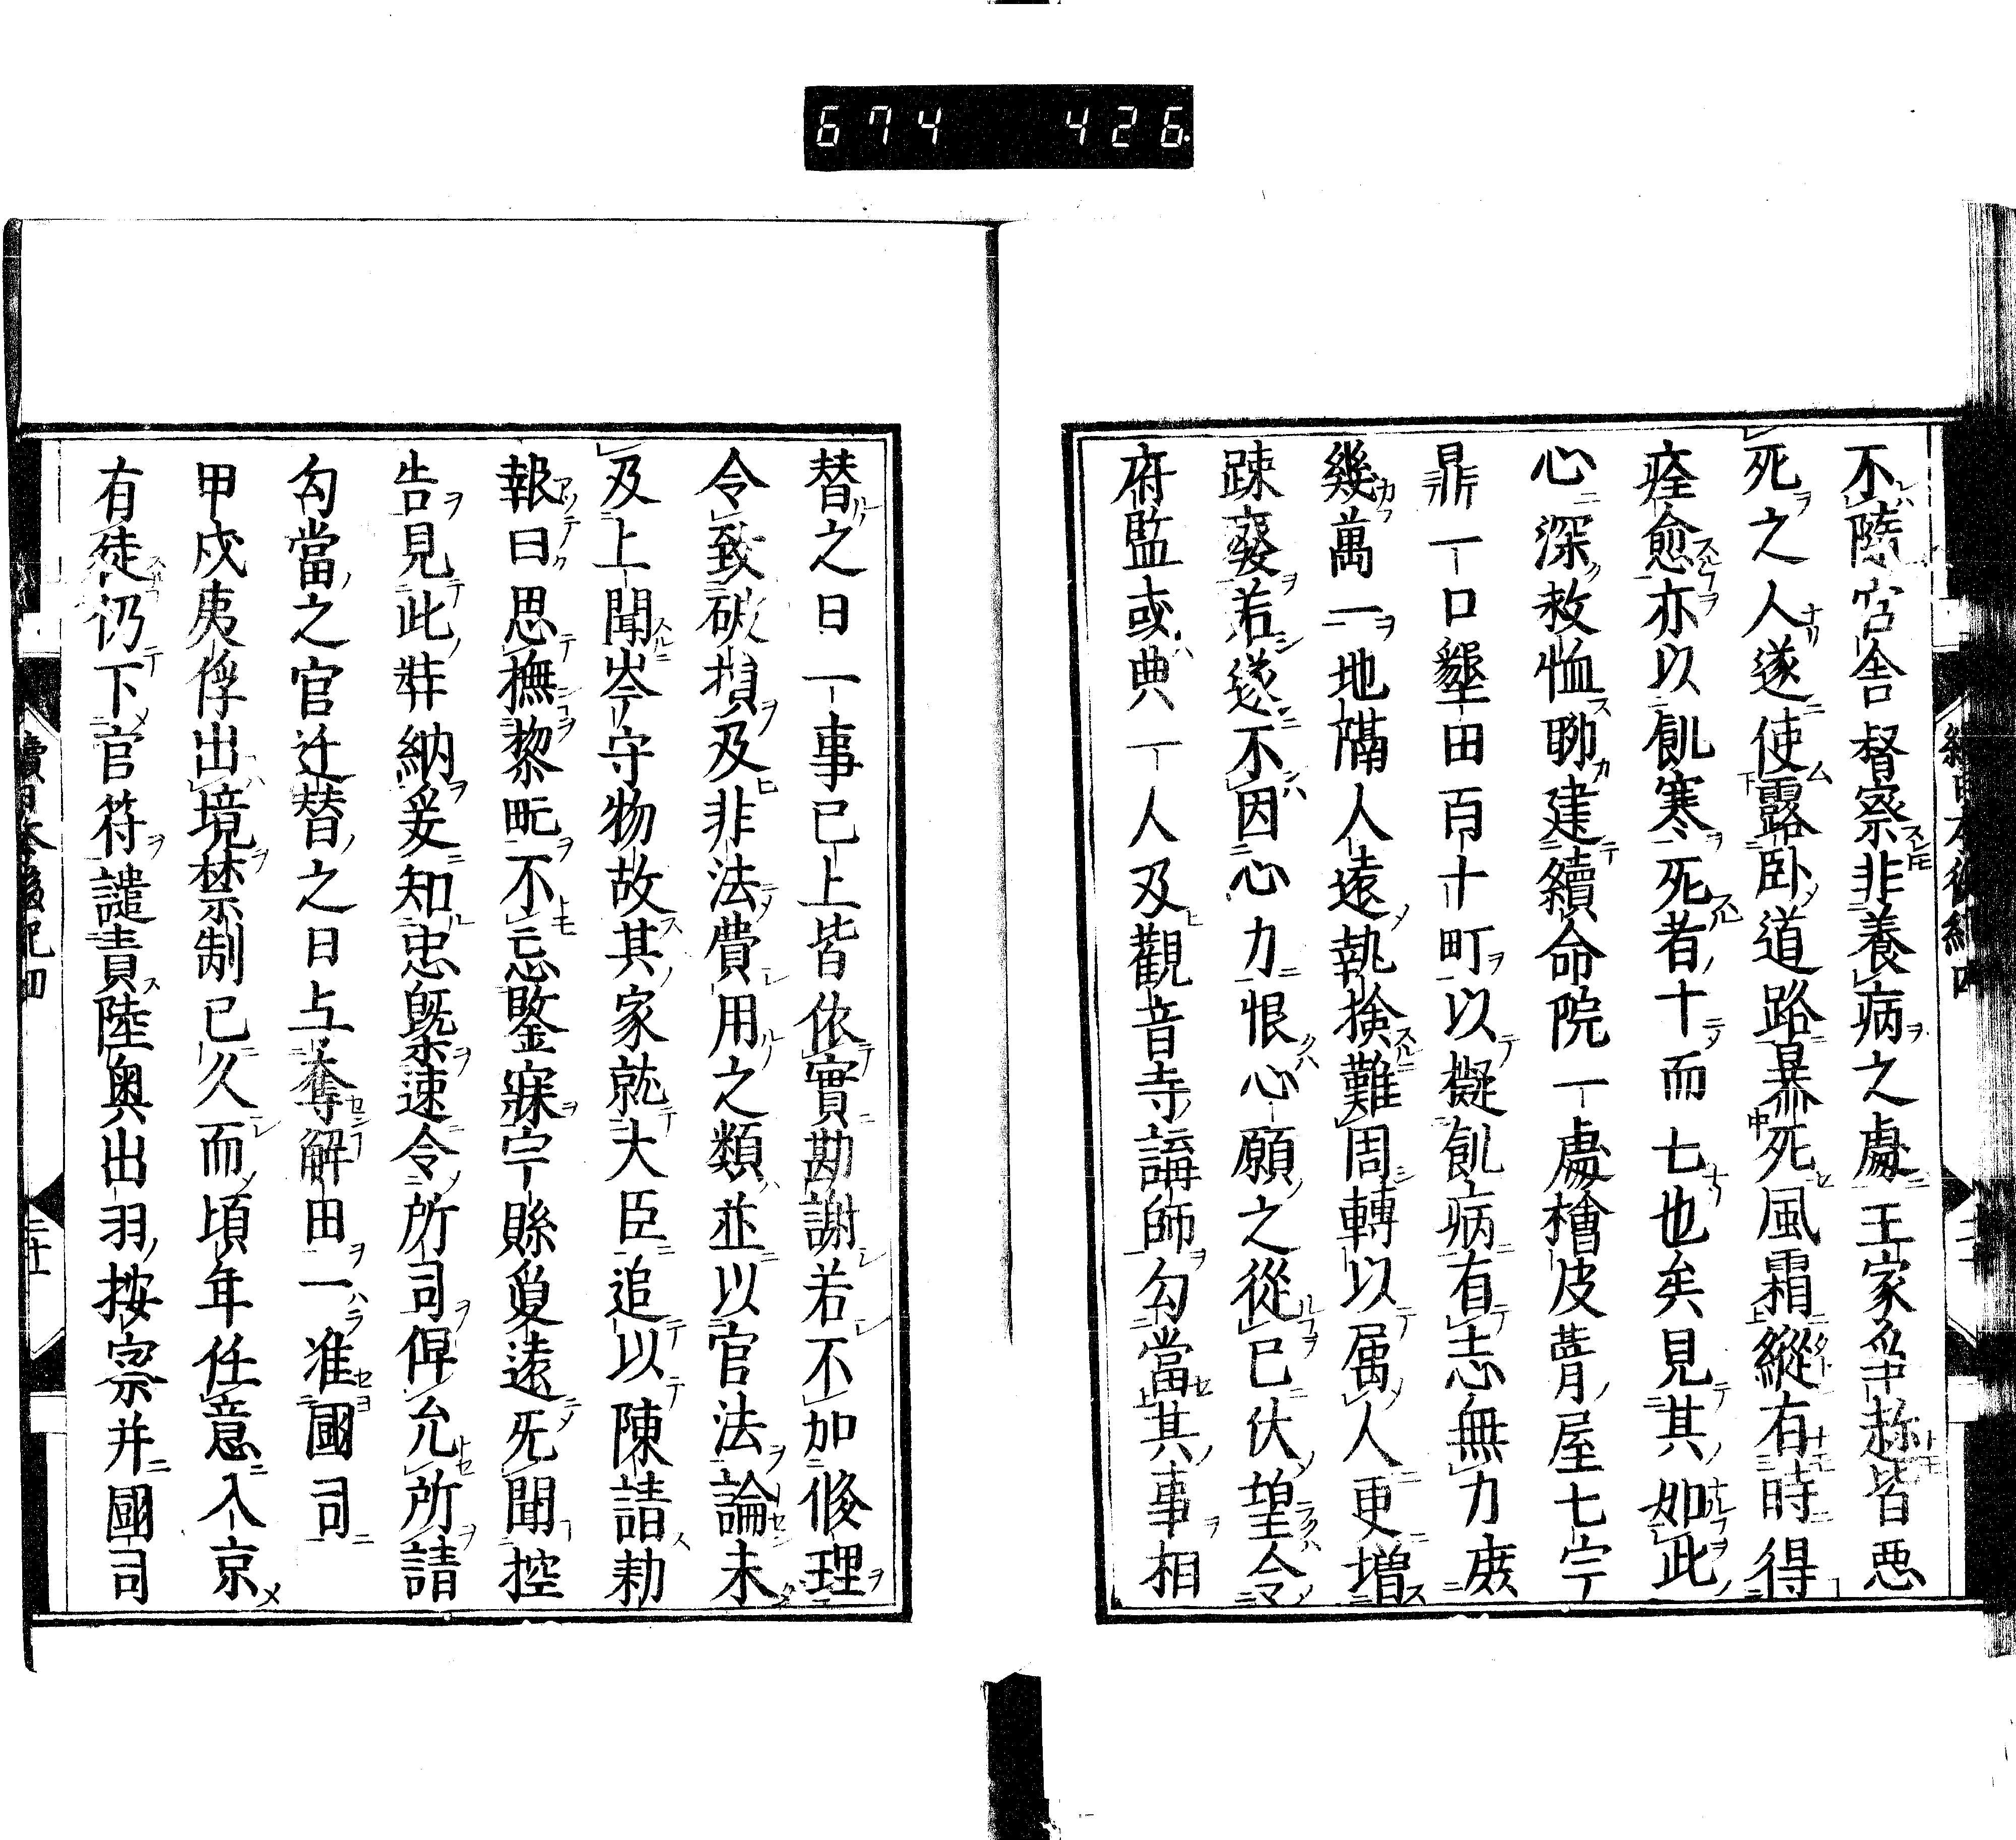 674 426
不隨舍督察非養病之處王家爭趂皆惡
死之人遂使露卧道路暴死風霜縱有時得
痊愈亦以飢寒死者十而七也矣見其如此
心深救恤聊建續命院一處檜皮葺屋七宇
鼎一口墾田百十町以擬飢病有志無力庻
幾萬一地隔人遠執撿難周轉以属人更增
踈癈若遂不因心力恨心願之從已伏望令
府監或典一人及觀音寺講師勾當其事相
替之日一事已上皆依實勘謝若不加修理
令致破損及非法費用之類並以官法論未
及上聞岑守物故其家就大臣追以陳請勅
報曰思撫黎甿不忘鑒寐宇縣夐遠旡聞控
告見此弉納爰知忠槩速令所司俾允所請
勾當之官迁替之日与奪解田一准國司
甲戌夷俘出境禁制已久而頃年任意入京
有徒仍下官符譴責陸奥出羽按察并國司
續日本後紀四